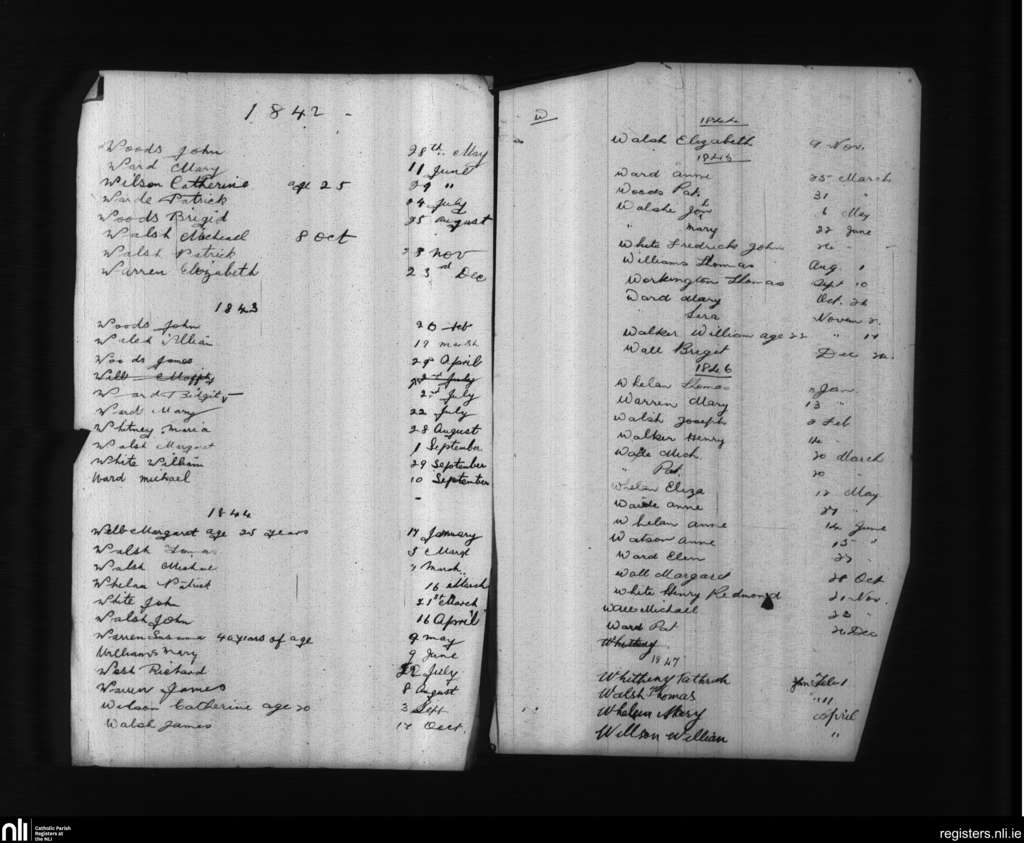 1842
Woods John 28th May
Ward Mary 11 June
Wilson Catherine age 25 29 "
Warde Patrick 24 July
Woods Brigid 25 August
Walsh Micheael 8 Oct
Walsh Patrick 23 Nov
Warren Elozabeth 23rd Dec
1843
Woods John 20 Feb
Walsh William 19 March
Woods James 29 April
Ward Bridgit 2nd July
Ward Mary 22 July
Whitney Maria 28 August
Walsh Margaret 1 September
White William 29 September
Ward Michael 10 September
1844
Webb Margaret age 25 years 17 January
Walsh 5 March
Walsh Michael March
Whelan Patrick 16 March
White John 21st March
Walsh John 16 April
Warren Susanna 40 years of age 9 May
Williams Mary 9 June
West Richard July
Warren James 8 August
Wilson Catherine age 20 3 Sept
Walsh James 17 Oct.
W
1844
Walsh Elizabeth 9 Nov.
1845
Ward Anne 25 March
Woods Pat. 31 "
Walshe Jon 6 May
" Mary 22 June
White Fredrick John 26 "
Williams Thomas Aug. 1
Workington Thomas Sept 10
Ward Mary Oct. 26
" Sera Novem 2.
Walker William age 22 " 17
Wall Briget Dec 20.
1846
Whelan Thomas Jan
Warren Mary 13 "
Walsh Joseph 2 Feb
Walker Henry 14 "
Wade Mich. 20 March
" Pat. 20 "
Whelan Eliza 12 May
Wade Anne 27 "
Whelan Anne 14 June
Watson Anne 15 "
Ward Elen 27 "
Wall Margaret 28 Oct
White Henry Redmond 21 Nov.
Wall Michael 23 "
Ward Pat 26 Dec
Whitheny
1847
Whitheny Kathrok Feb 1
Walsh Thomas " 11
Whelan Mary April
Willson William "
nli
Catholic Parish
Registers at
the NLI
registers.nli.ie